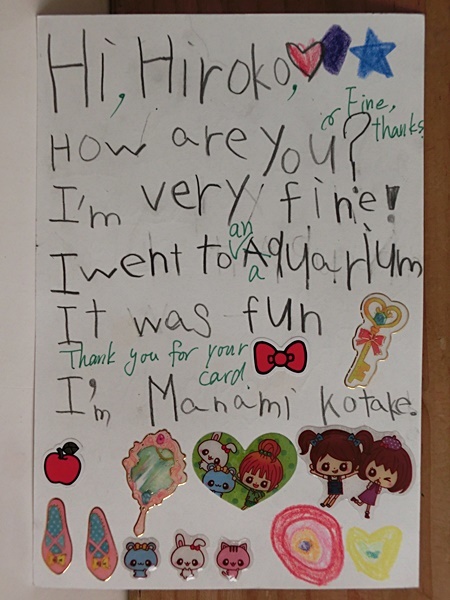 Hi, Hiroko,
Fine,
thanks
How are you?
I'm very fine!
an
I went to Aquarium
a
It was fun
Thank you for your
card
I'm Manami Kotake.